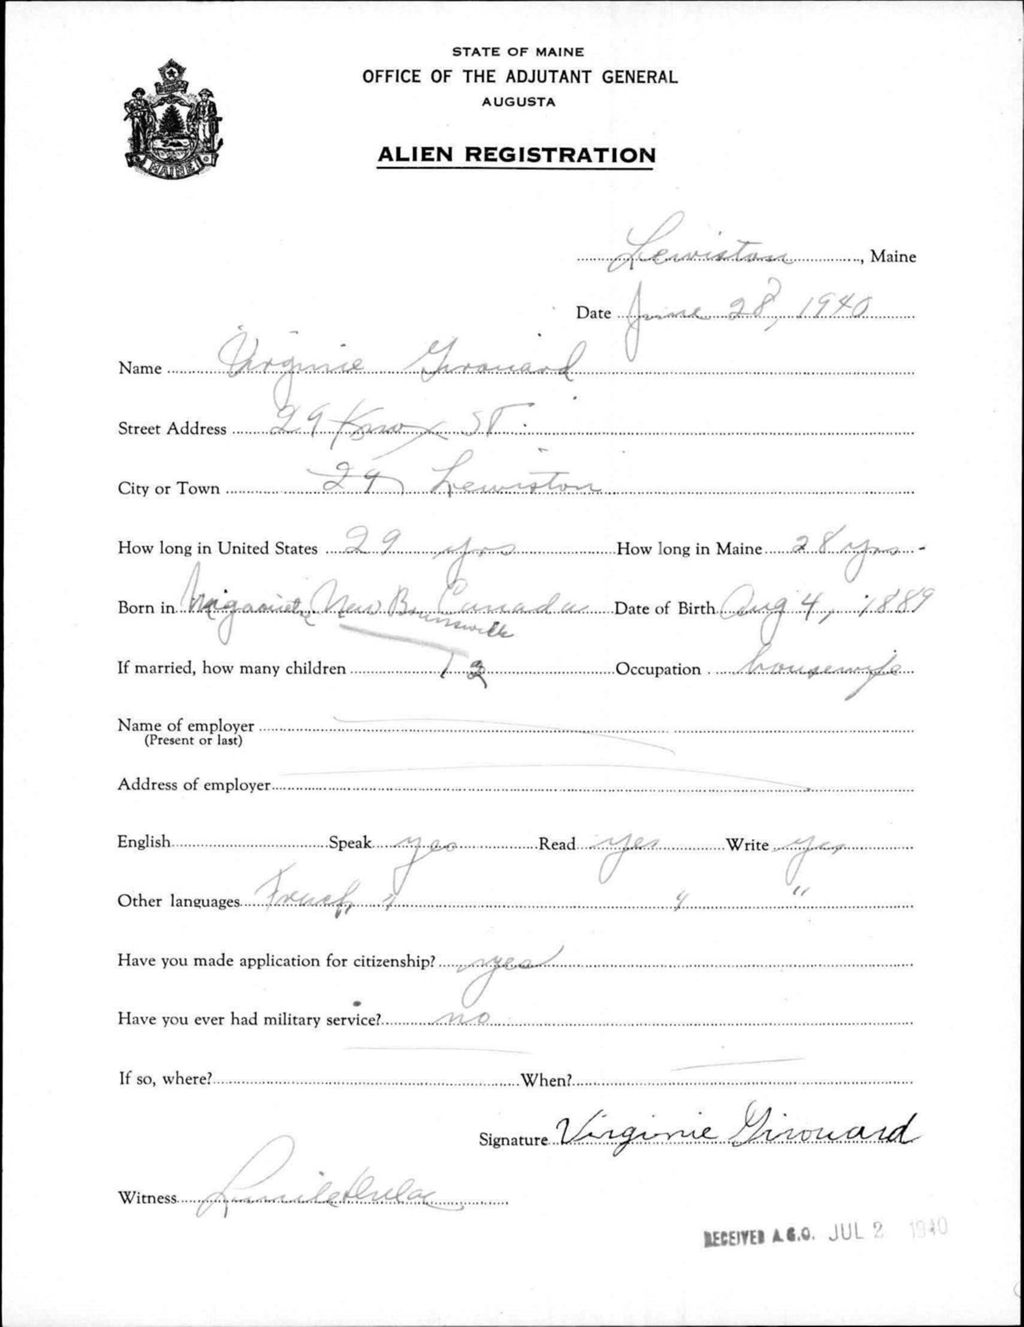 STATE OF MAINE
OFFICE OF THE ADJUTANT GENERAL
AUGUSTA
ALIEN REGISTRATION
MAINE
Lewiston, Maine
Date June 28, 1940
Name Virginie Girouard
Street Address 29 Knox ST.
City or Town 29 Lewiston
How long in United States 29 yrs How long in Maine 28 yrs -
Born in New Brunswick Canada Date of Birth Aug 4, 1889
If married, how many children 12 Occupation housewife
Name of employer
(Present or last)
Address of employer
English Speak yes Read yes Write yes
Other languages French " " "
Have you made application for citizenship? yes
Have you ever had military service? no
If so, where? When?
Signature Virginie Girouard
Witness
RECEIVED A.G.O. JUL 2 1940